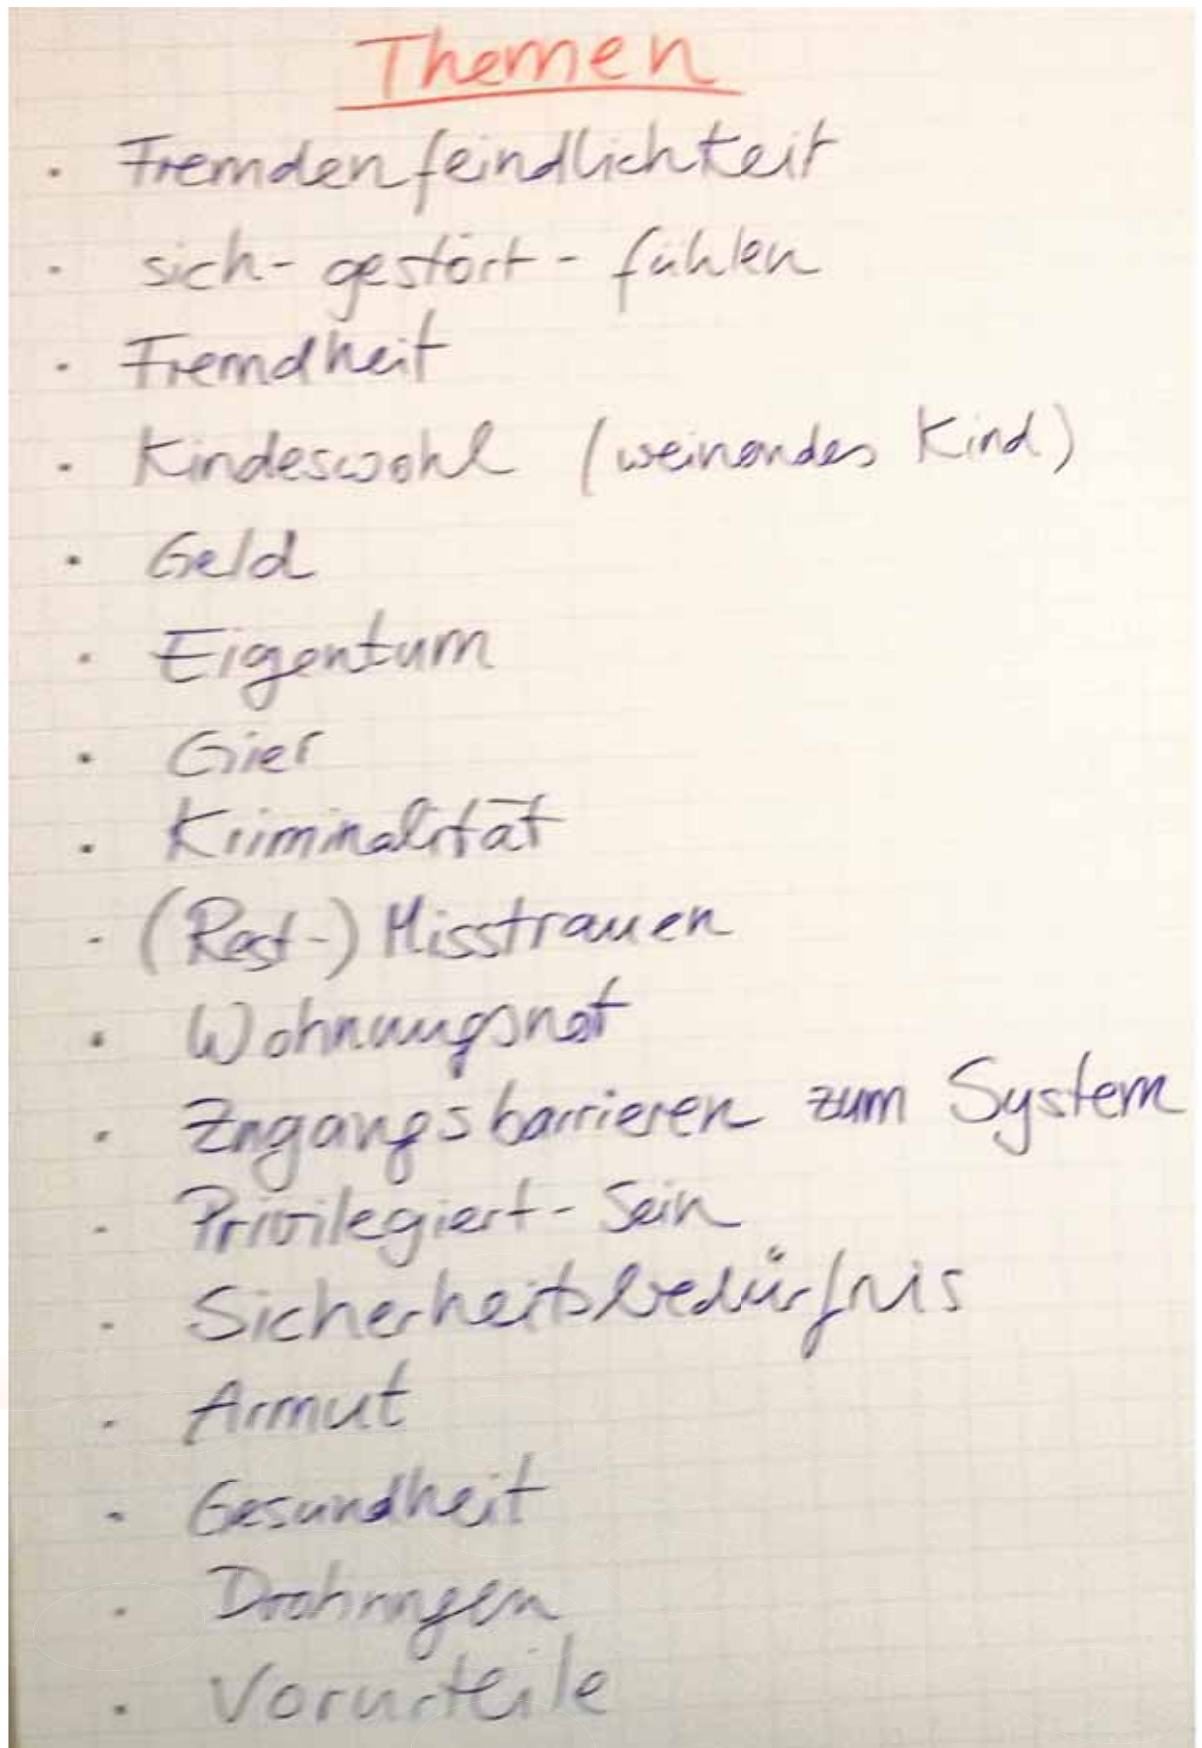 Themen
· Fremdenfeindlichkeit
· sich-gestört-fühlen
· Fremdheit
· Kindeswohl (weinendes Kind)
· Geld
· Eigentum
· Gier
· Kriminalität
· (Rest-) Misstrauen
· Wohnungsnot
· Zugangsbarrieren zum System
· Privilegiert-Sein
· Sicherheitsbedürfnis
· Armut
· Gesundheit
· Drohungen
· Vorurteile